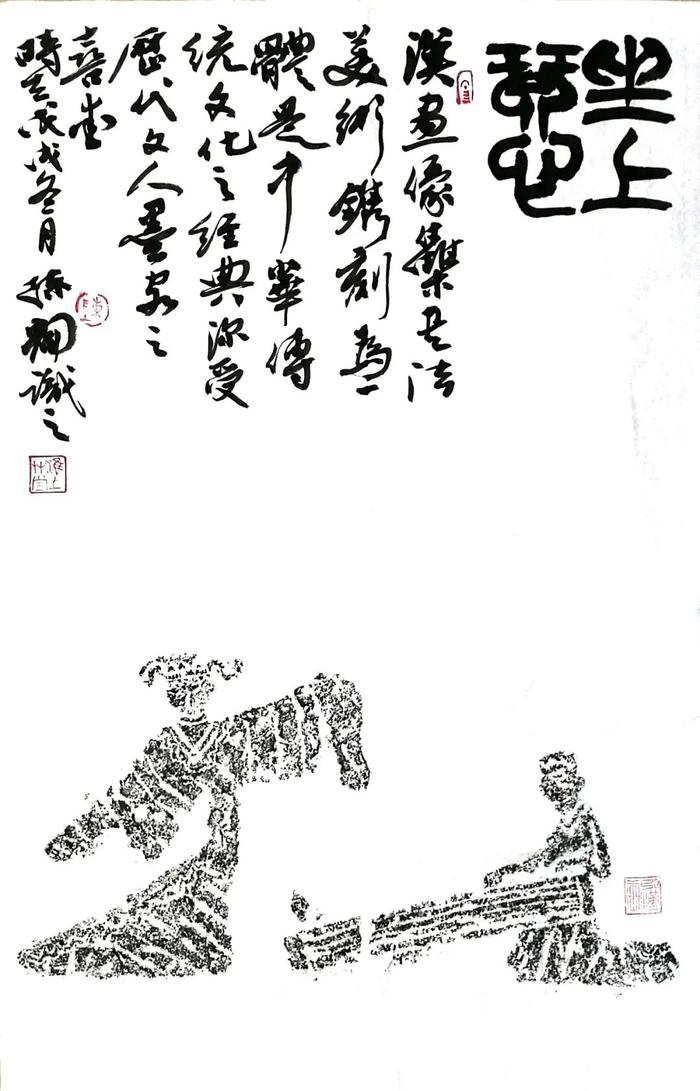 坐上
琴心
漢畫像集书法
美術鐫刻為一
體是中華傳
統文化之經典深受
歷代文人墨客之
喜愛
時在戊戌冬月 識之